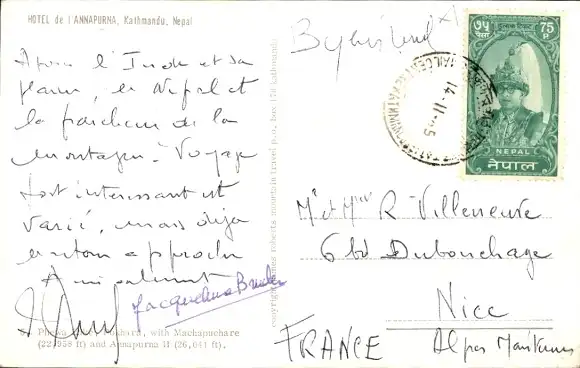 HOTEL de l'ANNAPURNA, Kathmandu, Nepal
Après l'Inde et sa
, le Népal et
la fraîcheur de la
montagne. Voyage
fort intéressant et
varié, mais déjà
le retour approche
Amicalement
Jacqueline
Phewa , with Machapuchare
(22,958 ft) and Annapurna II (26,041 ft).
copyright roberts mountain travel p.o. box 170 kathmandu
By
14-11-65
७५
75
NEPAL
नेपाल
Mr et Mme R. Villeneuve
6 bd Dubouchage
Nice
FRANCE Alpes Maritimes